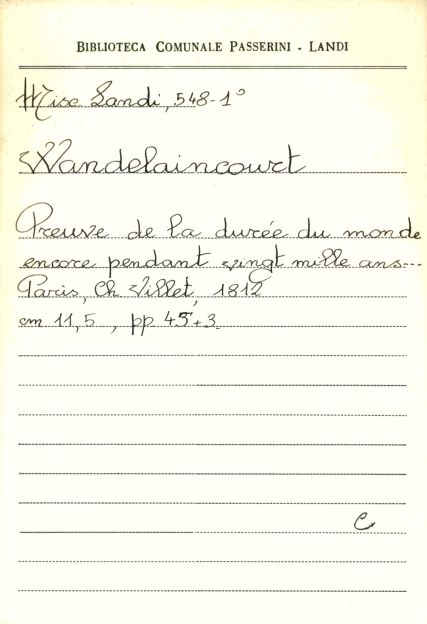 BIBLIOTECA COMUNALE PASSERINI - LANDI
Misc Landi, 548-1°
Wandelaincourt
Preuve de la durée du monde
encore pendant vingt mille ans...
Paris, Ch Villet, 1812
cm 11,5, pp 45+3
C